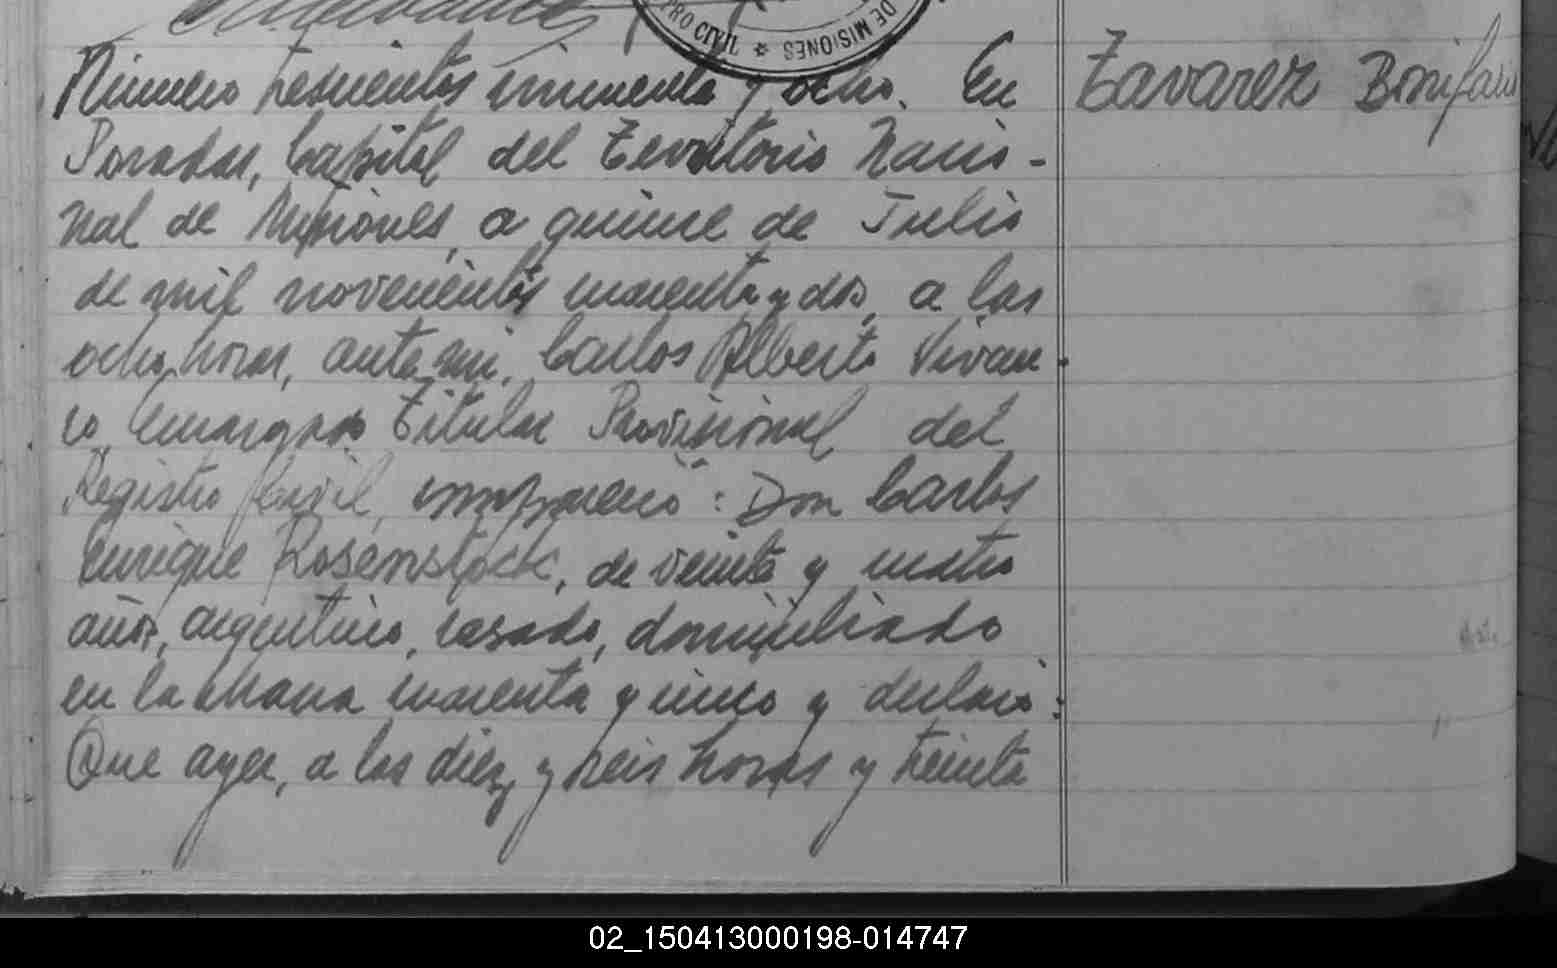 PRO CIVIL * DE MISIONES
Número trescientos cincuenta y ocho. En
Posadas, Capital del Territorio Nacio-
nal de Misiones, a quince de Julio
de mil novecientos cuarenta y dos, a las
ocho horas, ante mi, Carlos Alberto Vivan
co, Encargado Titular Provisional del
Registro Civil, compareció: Don Carlos
Enrique Rosenstock, de veinte y cuatro
años, argentino, casado, domiciliado
en la chacra cuarenta y cinco y declaró:
Que ayer, a las diez y seis horas y treinta
Tavarez Bonifacio
02_150413000198-014747